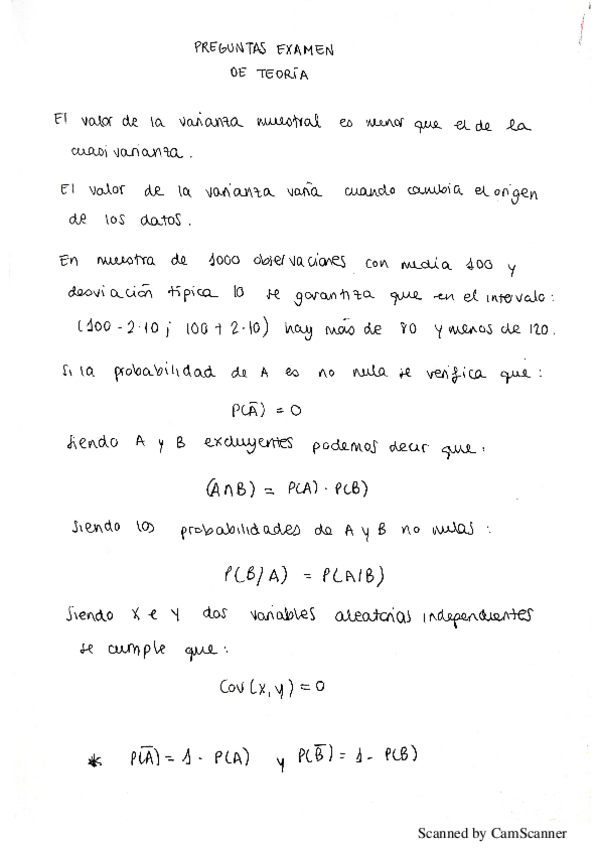 PREGUNTAS EXAMEN
DE TEORÍA
El valor de la varianza muestral es menor que el de la
cuasivarianza.
El valor de la varianza varía cuando cambia el origen
de los datos.
En muestra de 1000 observaciones con media 100 y
desviación típica 10 se garantiza que en el intervalo:
(100 - 2·10 ; 100 + 2·10) hay más de 80 y menos de 120.
Si la probabilidad de A es no nula se verifica que:
P(A̅) = 0
Siendo A y B excluyentes podemos decir que:
(A∩B) = P(A) · P(B)
Siendo las probabilidades de A y B no nulas:
P(B/A) = P(A/B)
Siendo X e Y dos variables aleatorias independientes
se cumple que:
Cov(x,y) = 0
* P(A̅) = 1 - P(A) y P(B̅) = 1 - P(B)
Scanned by CamScanner